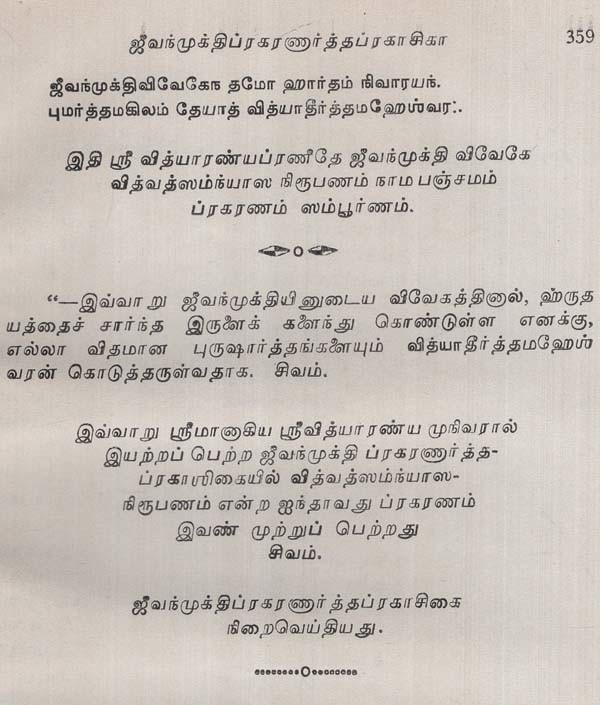 ஜீவந்முக்திப்ரகரணார்த்தப்ரகாசிகா 359
ஜீவந்முக்திவிவேகேந தமோ ஹார்தம் நிவாரயந்.
புமர்த்தமகிலம் தேயாத் வித்யாதீர்த்தமஹேஸ்வர:.
இதி ஸ்ரீ வித்யாரண்யப்ரணீதே ஜீவந்முக்தி விவேகே
வித்வத்ஸம்ந்யாஸ நிரூபணம் நாம பஞ்சமம்
ப்ரகரணம் ஸம்பூர்ணம்.
“—இவ்வாறு ஜீவந்முக்தியினுடைய விவேகத்தினால், ஹ்ருத
யத்தைச் சார்ந்த இருளைக் களைந்து கொண்டுள்ள எனக்கு,
எல்லா விதமான புருஷார்த்தங்களையும் வித்யாதீர்த்தமஹேஸ்
வரன் கொடுத்தருள்வதாக. சிவம்.
இவ்வாறு ஸ்ரீமானாகிய ஸ்ரீவித்யாரண்ய முநிவரால்
இயற்றப் பெற்ற ஜீவந்முக்தி ப்ரகரணார்த்த-
ப்ரகாஶிகையில் வித்வத்ஸம்ந்யாஸ-
நிரூபணம் என்ற ஐந்தாவது ப்ரகரணம்
இவண் முற்றுப் பெற்றது
சிவம்.
ஜீவந்முக்திப்ரகரணார்த்தப்ரகாசிகை
நிறைவெய்தியது.